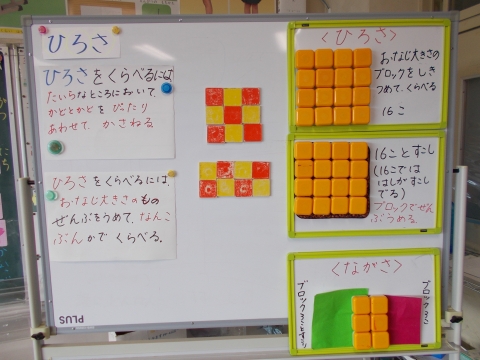 ひろさ
ひろさをくらべるには、
たいらなところにおいて、
かどとかどを ぴたり
あわせて、かさねる
ひろさをくらべるには、
おなじ大きさのもの
ぜんぶをうめて、なんこ
ぶんかで くらべる。
PLUS
〈ひろさ〉
おなじ大きさの
ブロックをしき
つめて、くらべる
16こ
16こと すこし
(16こでは
はしがすこし
でる)
ブロックでぜん
ぶうめる。
〈ながさ〉